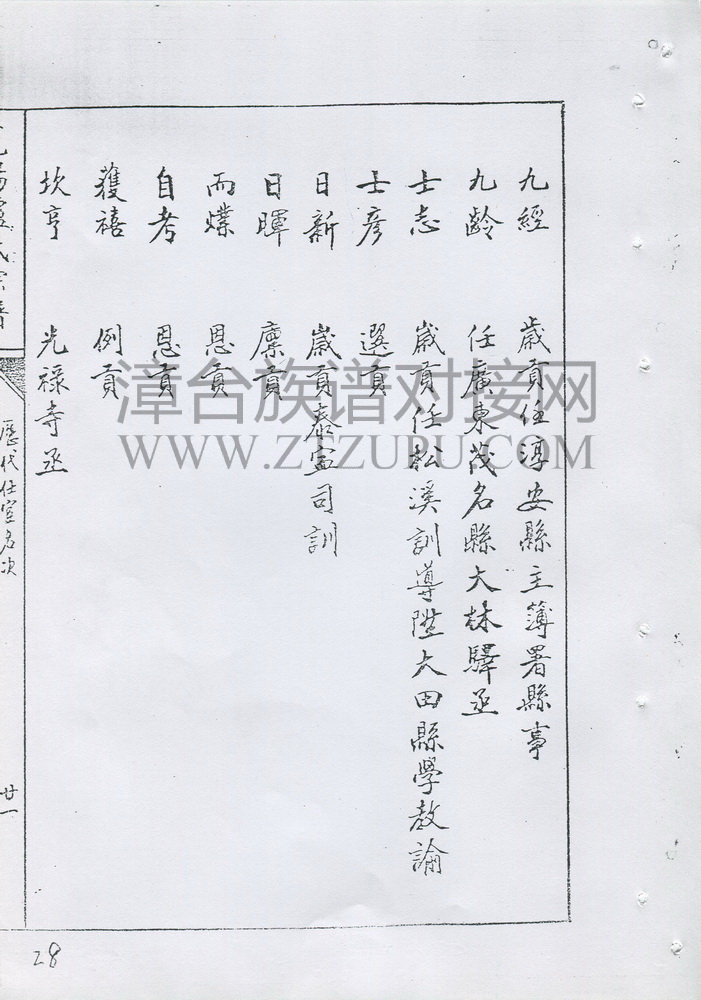 九經 歲貢任淳安縣主簿署縣事
九齡 任廣東茂名縣大林驛丞
士志 歲貢任松溪訓導陞大田縣學教諭
士彥 選貢
日新 歲貢泰寧司訓
日暉 廩貢
而煠 恩貢
自考 恩貢
獲禧 例貢
坎亨 光祿寺丞
氏宗譜
歷代仕宦名次
廿一
28
漳台族谱对接网
WWW.ZTZUPU.COM